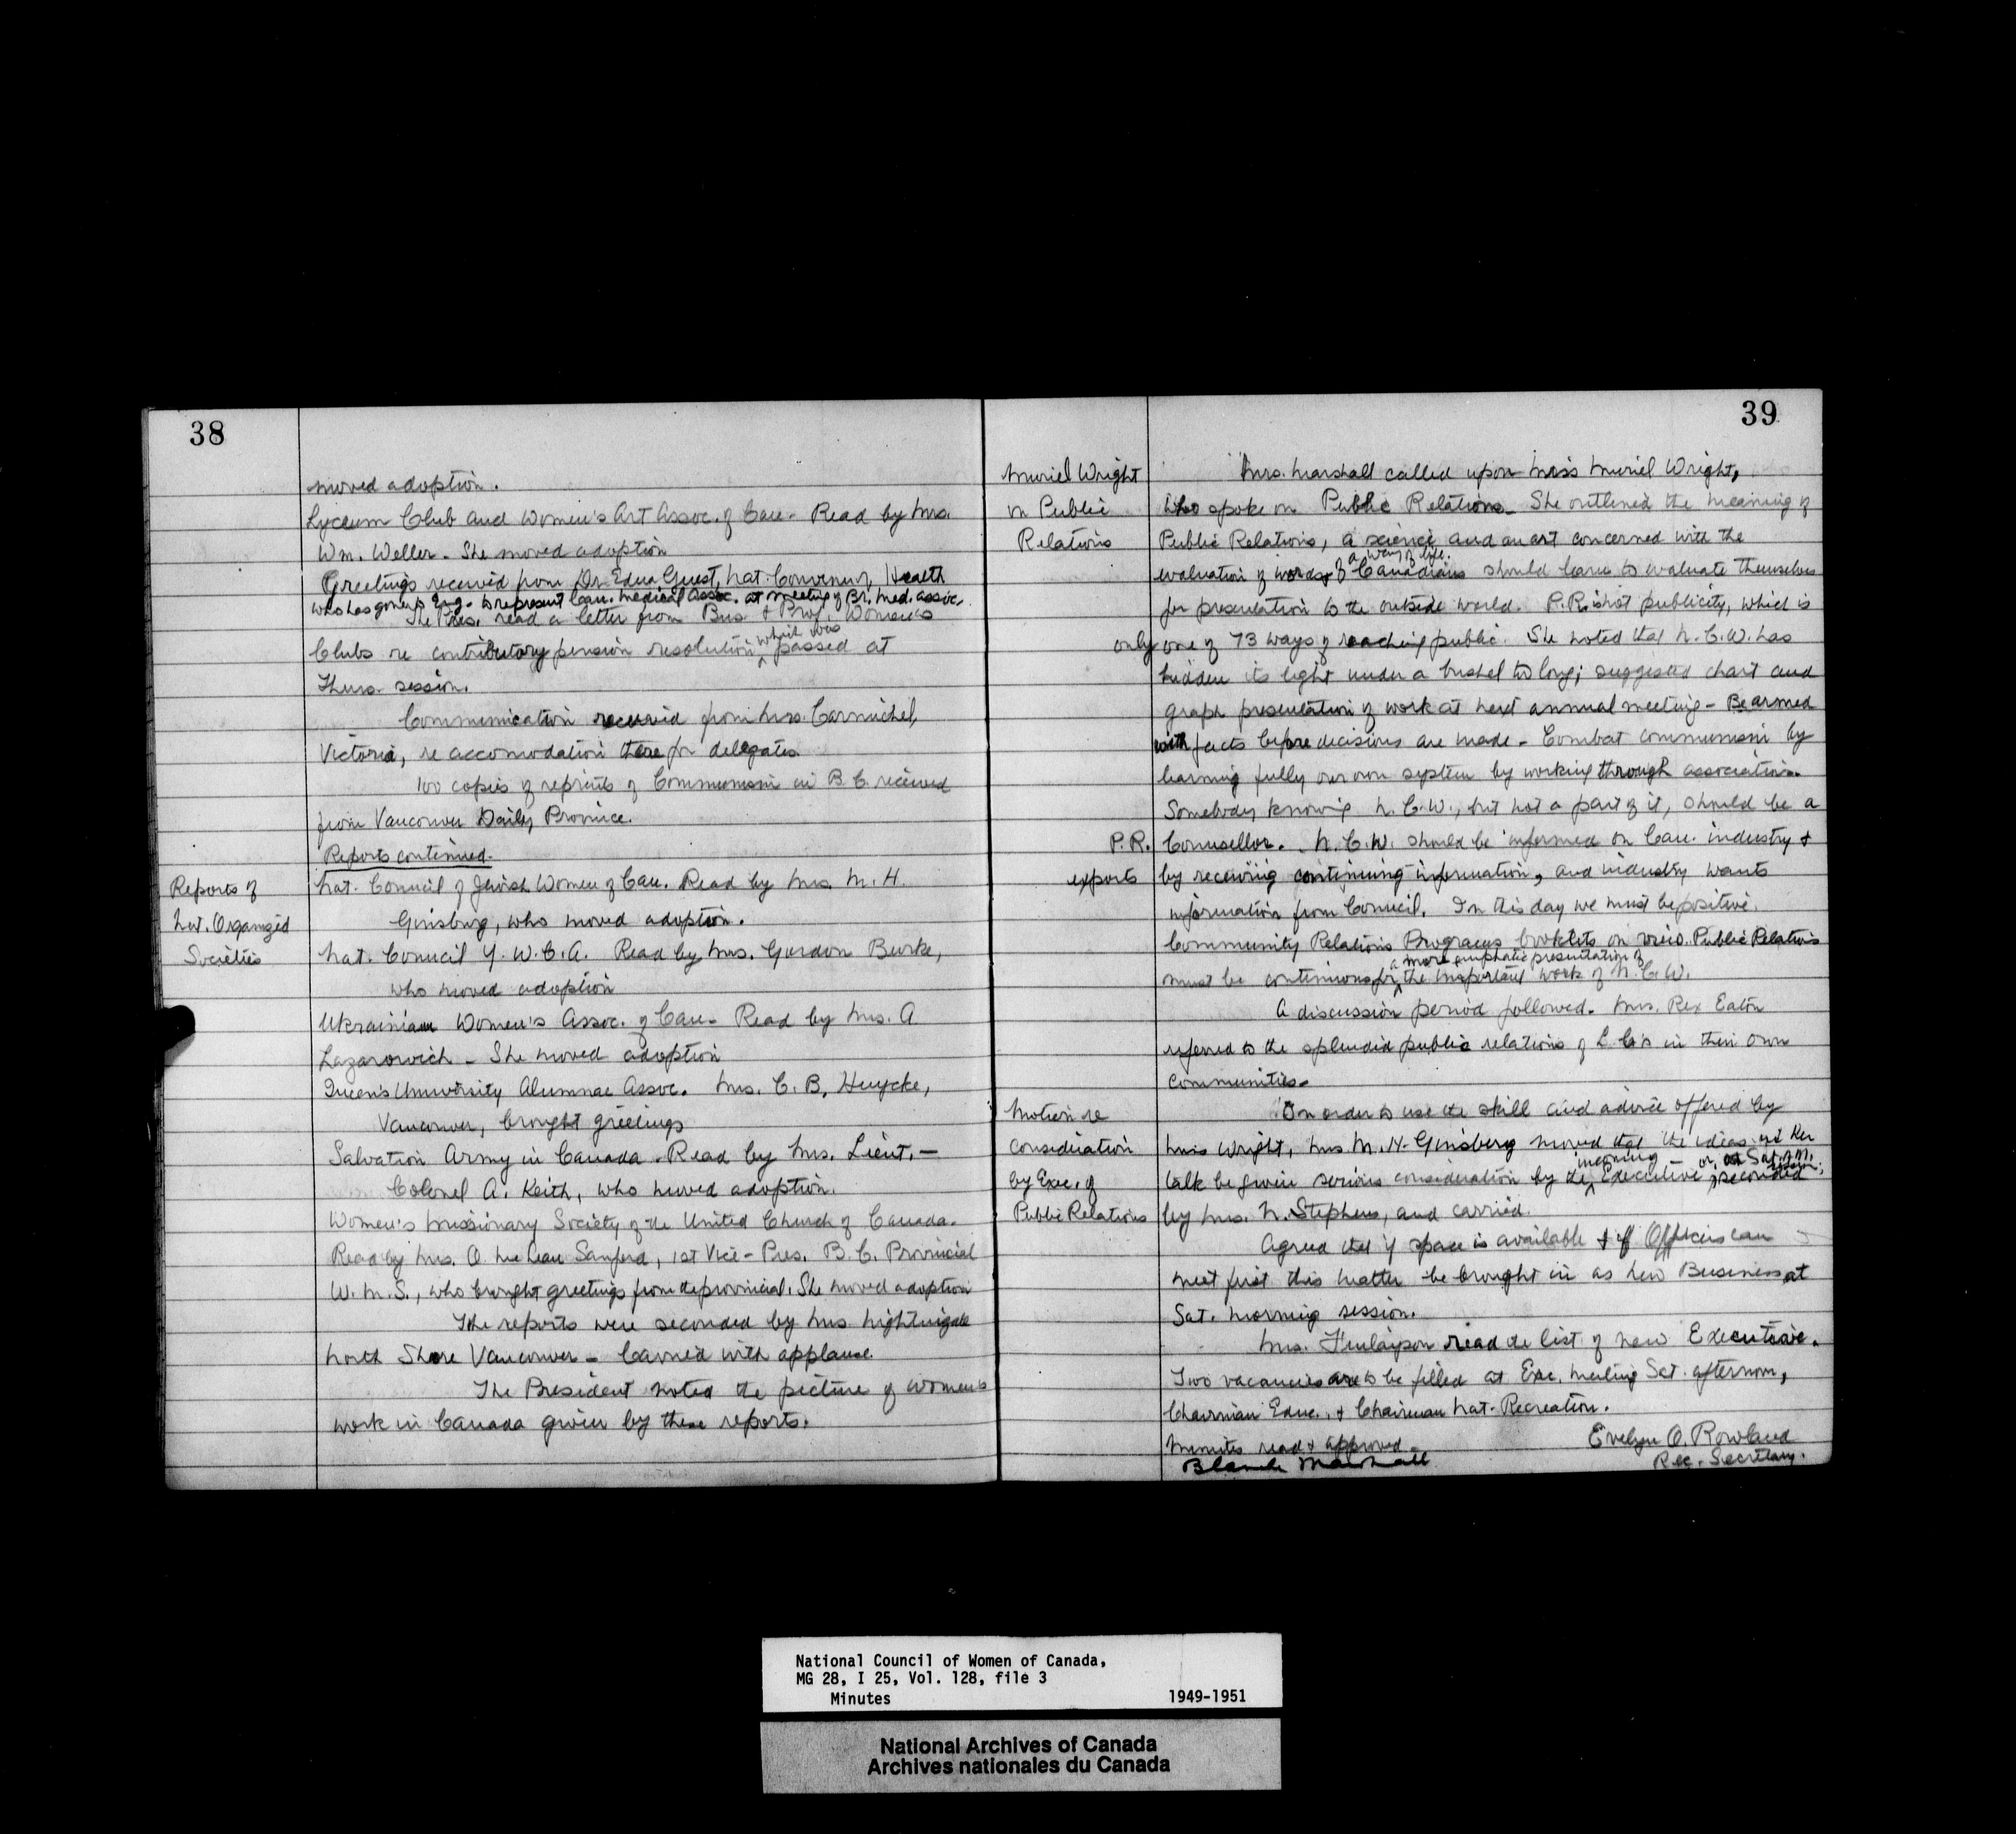 38
moved adoption.
Lyceum Club and Women's Art Assoc. of Can - Read by Mrs.
Wm. Weller - She moved adoption
Greetings received from Dr. Edna Guest, Nat. Convenor, Health
who has gone to Eng. to represent Can. Medical Assoc. at meeting of Br. Med. Assoc.
The Pres. read a letter from Bus. & Prof. Women's
Clubs re contributory pension resolution which was passed at
Thurs. session.
Communication received from Mrs. Carmichel,
Victoria, re accomodation there for delegates
100 copies of reprints of Communism in B.C. received
from Vancouver Daily Province.
Reports continued.
Reports of
Nat. Organized
Societies
Nat. Council of Jewish Women of Can. Read by Mrs. M. H.
Ginsburg, who moved adoption.
Nat. Council Y.W.C.A. Read by Mrs. Gordon Burke,
who moved adoption
Ukrainian Women's Assoc. of Can - Read by Mrs. A
Lazarowich - She moved adoption
Queen's University Alumnae Assoc. Mrs. C. B. Huycke,
Vancouver, brought greetings
Salvation Army in Canada. Read by Mrs. Lieut. -
Colonel A. Keith, who moved adoption.
Women's Missionary Society of the United Church of Canada.
Read by Mrs. O. McLean Sanford, 1st Vice-Pres. B.C. Provincial
W.M.S., who brought greetings from the provincial. She moved adoption
The reports were seconded by Mrs. Nightingale
North Shore Vancouver - Carried with applause.
The President noted the picture of women's
work in Canada given by these reports.
39
Muriel Wright
on Public
Relations
Mrs. Marshall called upon Miss Muriel Wright,
who spoke on Public Relations - She outlined the meaning of
Public Relations, a science and an art concerned with the
evaluation of words & of a way of life. Canadians should learn to evaluate themselves
for presentation to the outside world. P.R. is not publicity, which is
only one of 73 ways of reaching public. She noted that N.C.W. has
hidden its light under a bushel to long; suggested chart and
graph presentation of work at next annual meeting - Be armed
with facts before decisions are made - Combat communism by
learning fully our own system by working through association.
Somebody knowing N.C.W., but not a part of it, should be a
P.R. Counsellor. N.C.W. should be informed on Can. industry &
exports by receiving continuing information, and industry wants
information from Council. In this day we must be positive.
Community Relations Programs booklets on view. Public Relations
must be continuous for a more emphatic presentation of the important work of N.C.W.
A discussion period followed. Mrs. Rex Eaton
referred to the splendid public relations of L.C's in their own
communities.
Motion re
consideration
by Exec. of
Public Relations
In order to use the skill and advice offered by
Miss Wright, Mrs M. H. Ginsberg moved that the ideas in her
talk be given serious consideration by the incoming Executive or, at Sat. A.M. session; seconded
by Mrs. N. Stephens, and carried.
Agreed that if space is available & if Officers can
meet first this matter be brought in as New Business at
Sat. morning session.
Mrs. Finlayson read the list of new Executive.
Two vacancies are to be filled at Exec. meeting Sat. afternoon,
Chairman Educ., & Chairman Nat. Recreation.
Minutes read & approved -
Blanche Marshall
Evelyn O. Rowland
Rec. Secretary.
National Council of Women of Canada,
MG 28, I 25, Vol. 128, file 3
Minutes 1949-1951
National Archives of Canada
Archives nationales du Canada